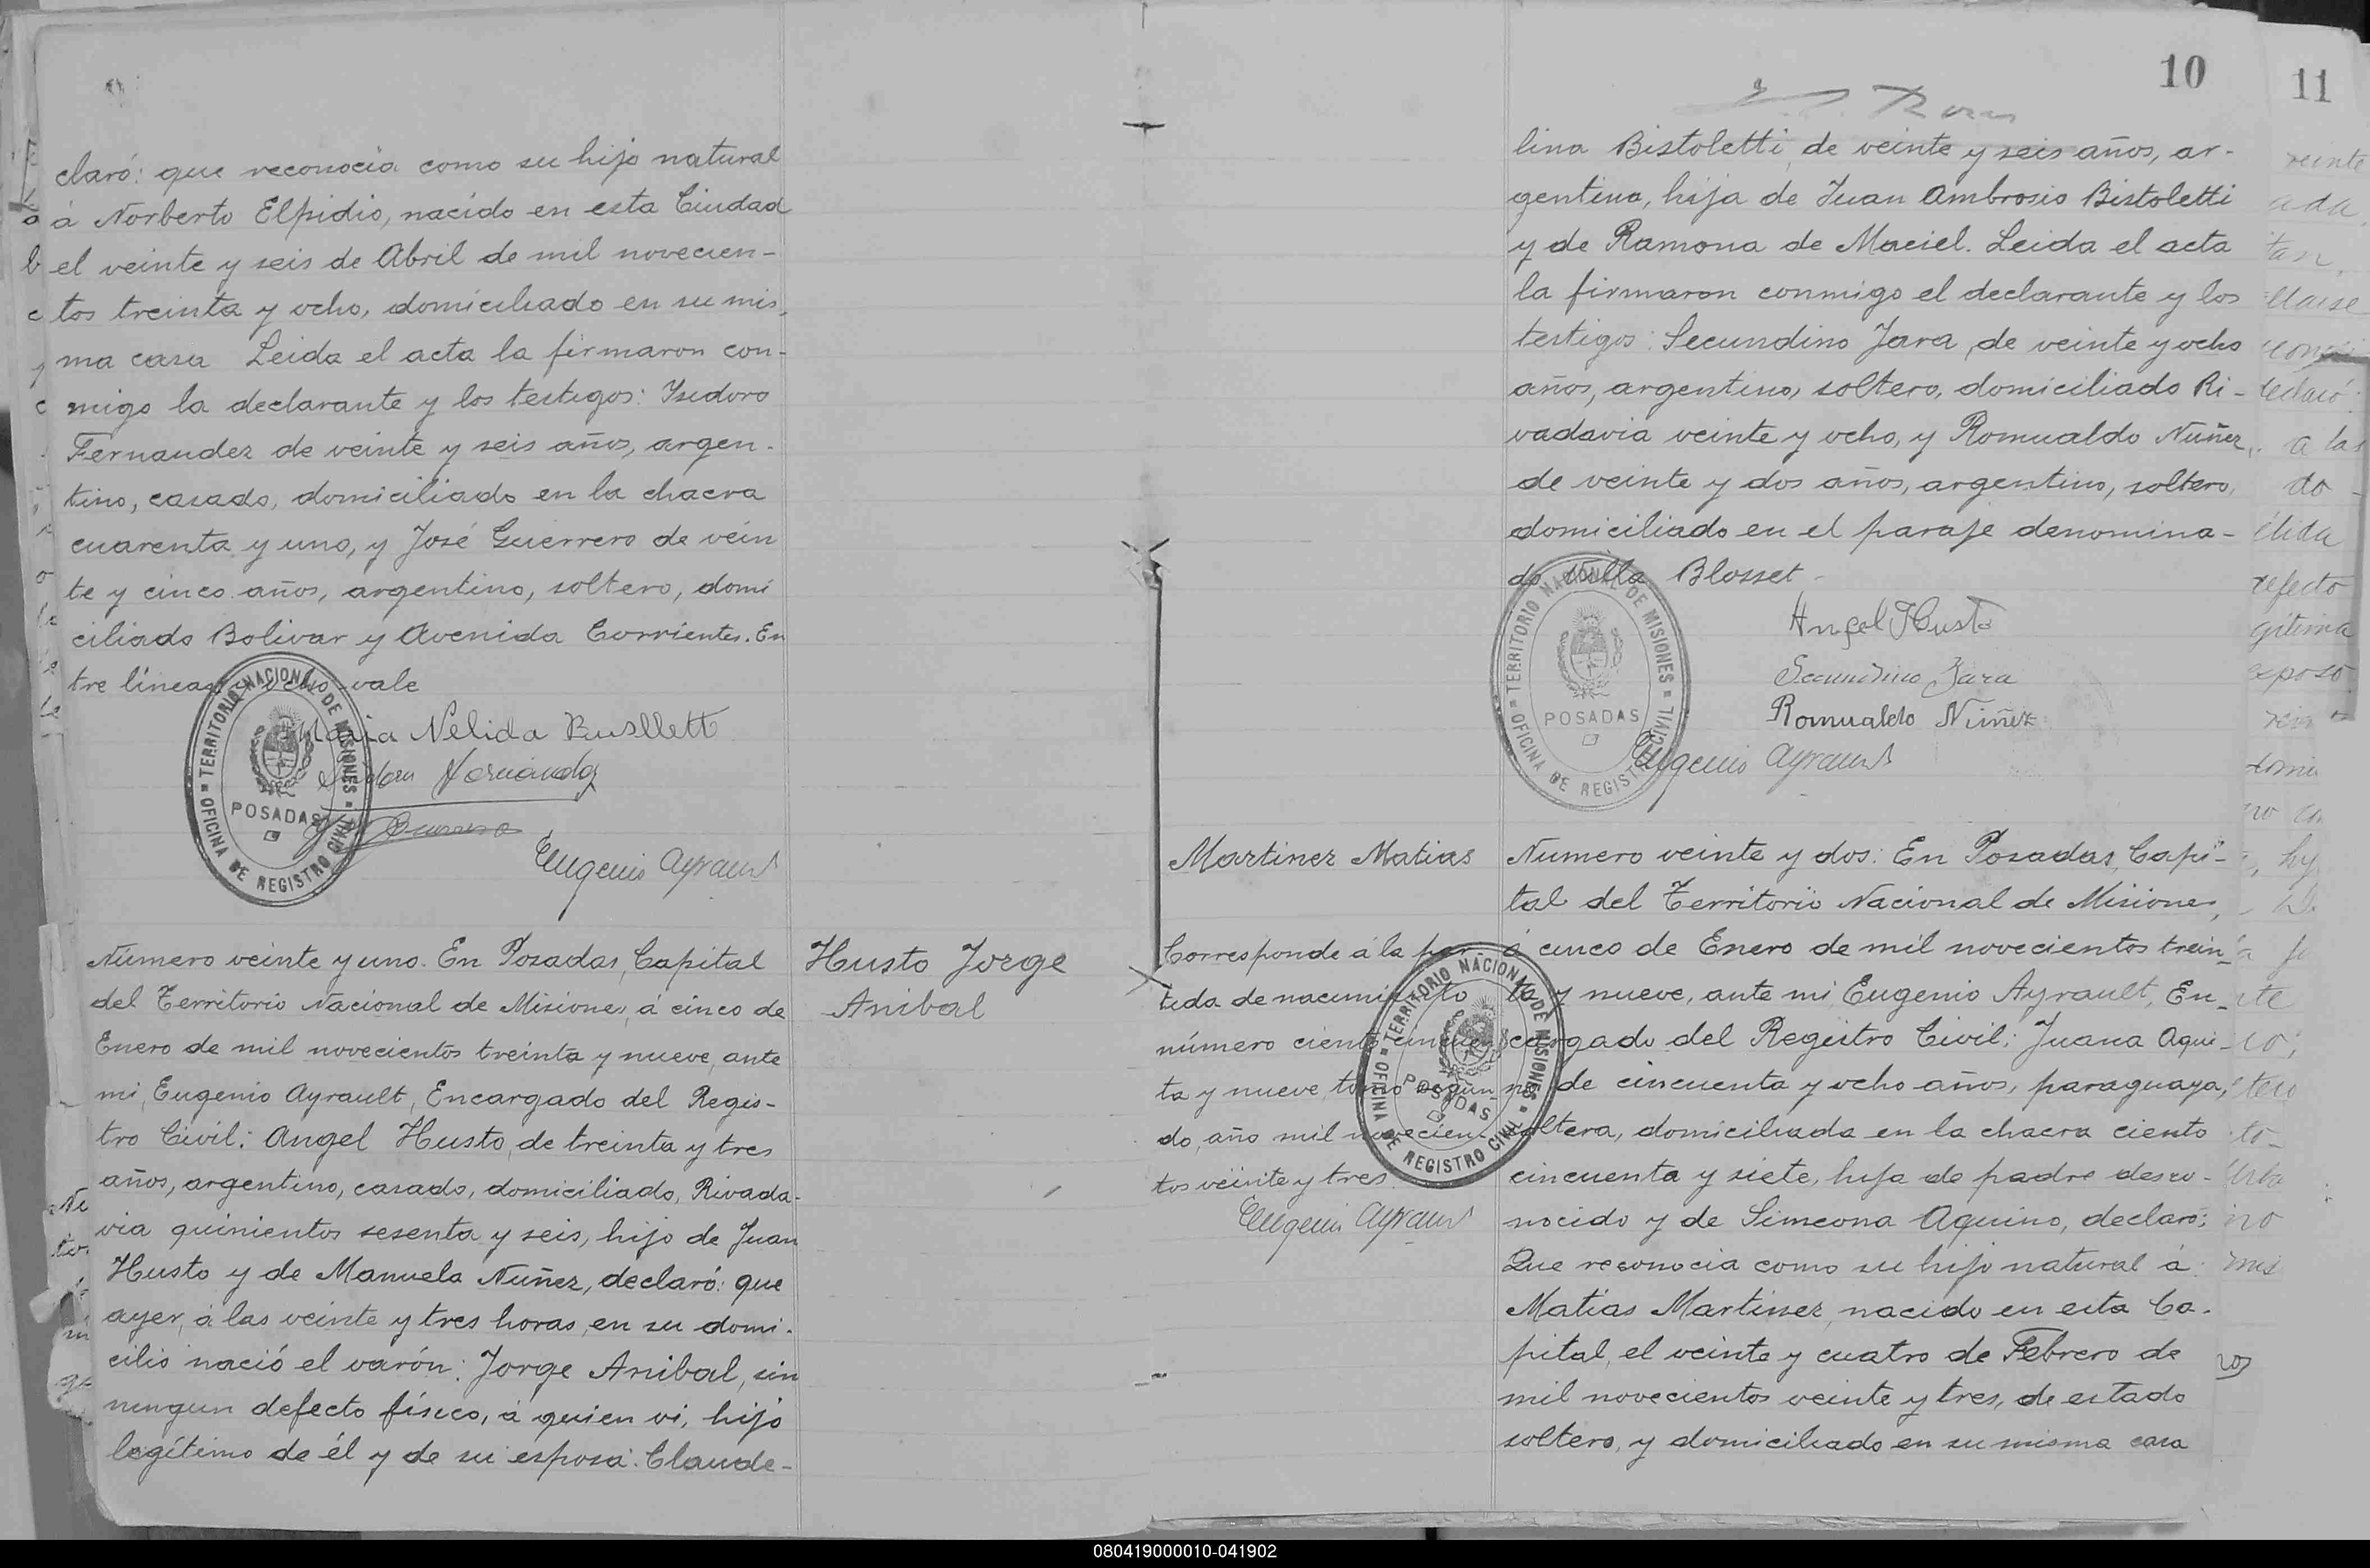 claró: que reconocía como su hijo natural
á Norberto Elpidio, nacido en esta Ciudad
el veinte y seis de Abril de mil novecien-
tos treinta y ocho, domiciliado en su mis-
ma casa Leida el acta la firmaron con-
migo la declarante y los testigos: Isidoro
Fernandez de veinte y seis años, argen-
tino, casado, domiciliado en la chacra
cuarenta y uno, y José Guerrero de vein
te y cinco años, argentino, soltero, domi
ciliado Bolivar y Avenida Corrientes. En
tre líneas: y ocho - vale
Maria Nelida Busllett
Eugenio Ayrault
TERRITORIO NACIONAL DE MISIONES
POSADAS
OFICINA DE REGISTRO CIVIL
Número veinte y uno. En Posadas, Capital
del Territorio Nacional de Misiones, á cinco de
Enero de mil novecientos treinta y nueve, ante
mi, Eugenio Ayrault, Encargado del Regis-
tro Civil: Angel Husto, de treinta y tres
años, argentino, casado, domiciliado, Rivada-
via quinientos sesenta y seis, hijo de Juan
Husto y de Manuela Nuñez, declaró: que
ayer, á las veinte y tres horas, en su domi-
cilio nació el varón: Jorge Anibal, sin
ningun defecto físico, á quien vi, hijo
legítimo de él y de su esposa: Claude-
Husto Jorge
Anibal
10
lina Bistoletti, de veinte y seis años, ar-
gentina, hija de Juan Ambrosio Bistoletti
y de Ramona de Maciel. Leida el acta
la firmaron conmigo el declarante y los
testigos: Secundino Jara, de veinte y ocho
años, argentino, soltero, domiciliado Ri-
vadavia veinte y ocho, y Romualdo Nuñez,
de veinte y dos años, argentino, soltero,
domiciliado en el paraje denomina-
do Villa Blosset-
Angel Husto
Secundino Jara
Romualdo Nuñez
Eugenio Ayrault
TERRITORIO NACIONAL DE MISIONES
POSADAS
OFICINA DE REGISTRO CIVIL
Martinez Matias
Corresponde á la par
tida de nacimiento
número ciento cincuen
ta y nueve, tomo segun
do, año mil novecien
tos veinte y tres.
Eugenio Ayrault
TERRITORIO NACIONAL DE MISIONES
POSADAS
OFICINA DE REGISTRO CIVIL
Numero veinte y dos: En Posadas, Capi-
tal del Territorio Nacional de Misiones,
á cinco de Enero de mil novecientos trein-
ta y nueve, ante mi, Eugenio Ayrault, En-
cargado del Registro Civil: Juana Aqui-
no, de cincuenta y ocho años, paraguaya,
soltera, domiciliada en la chacra ciento
cincuenta y siete, hija de padre desco-
nocido y de Simeona Aquino, declaró:
Que reconocia como su hijo natural á
Matias Martinez, nacido en esta Ca-
pital, el veinte y cuatro de Febrero de
mil novecientos veinte y tres, de estado
soltero, y domiciliado en su misma casa
11
080419000010-041902